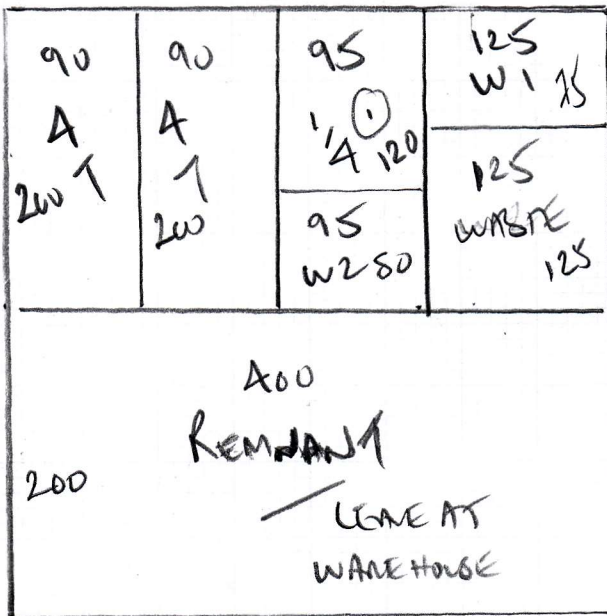 90
4
200 ↑
90
4
↑
200
95
1/4 ① 120
95
W2 80
125
W1 75
125
WASTE
125
400
REMNANT
200
/ LEAVE AT
WAREHOUSE